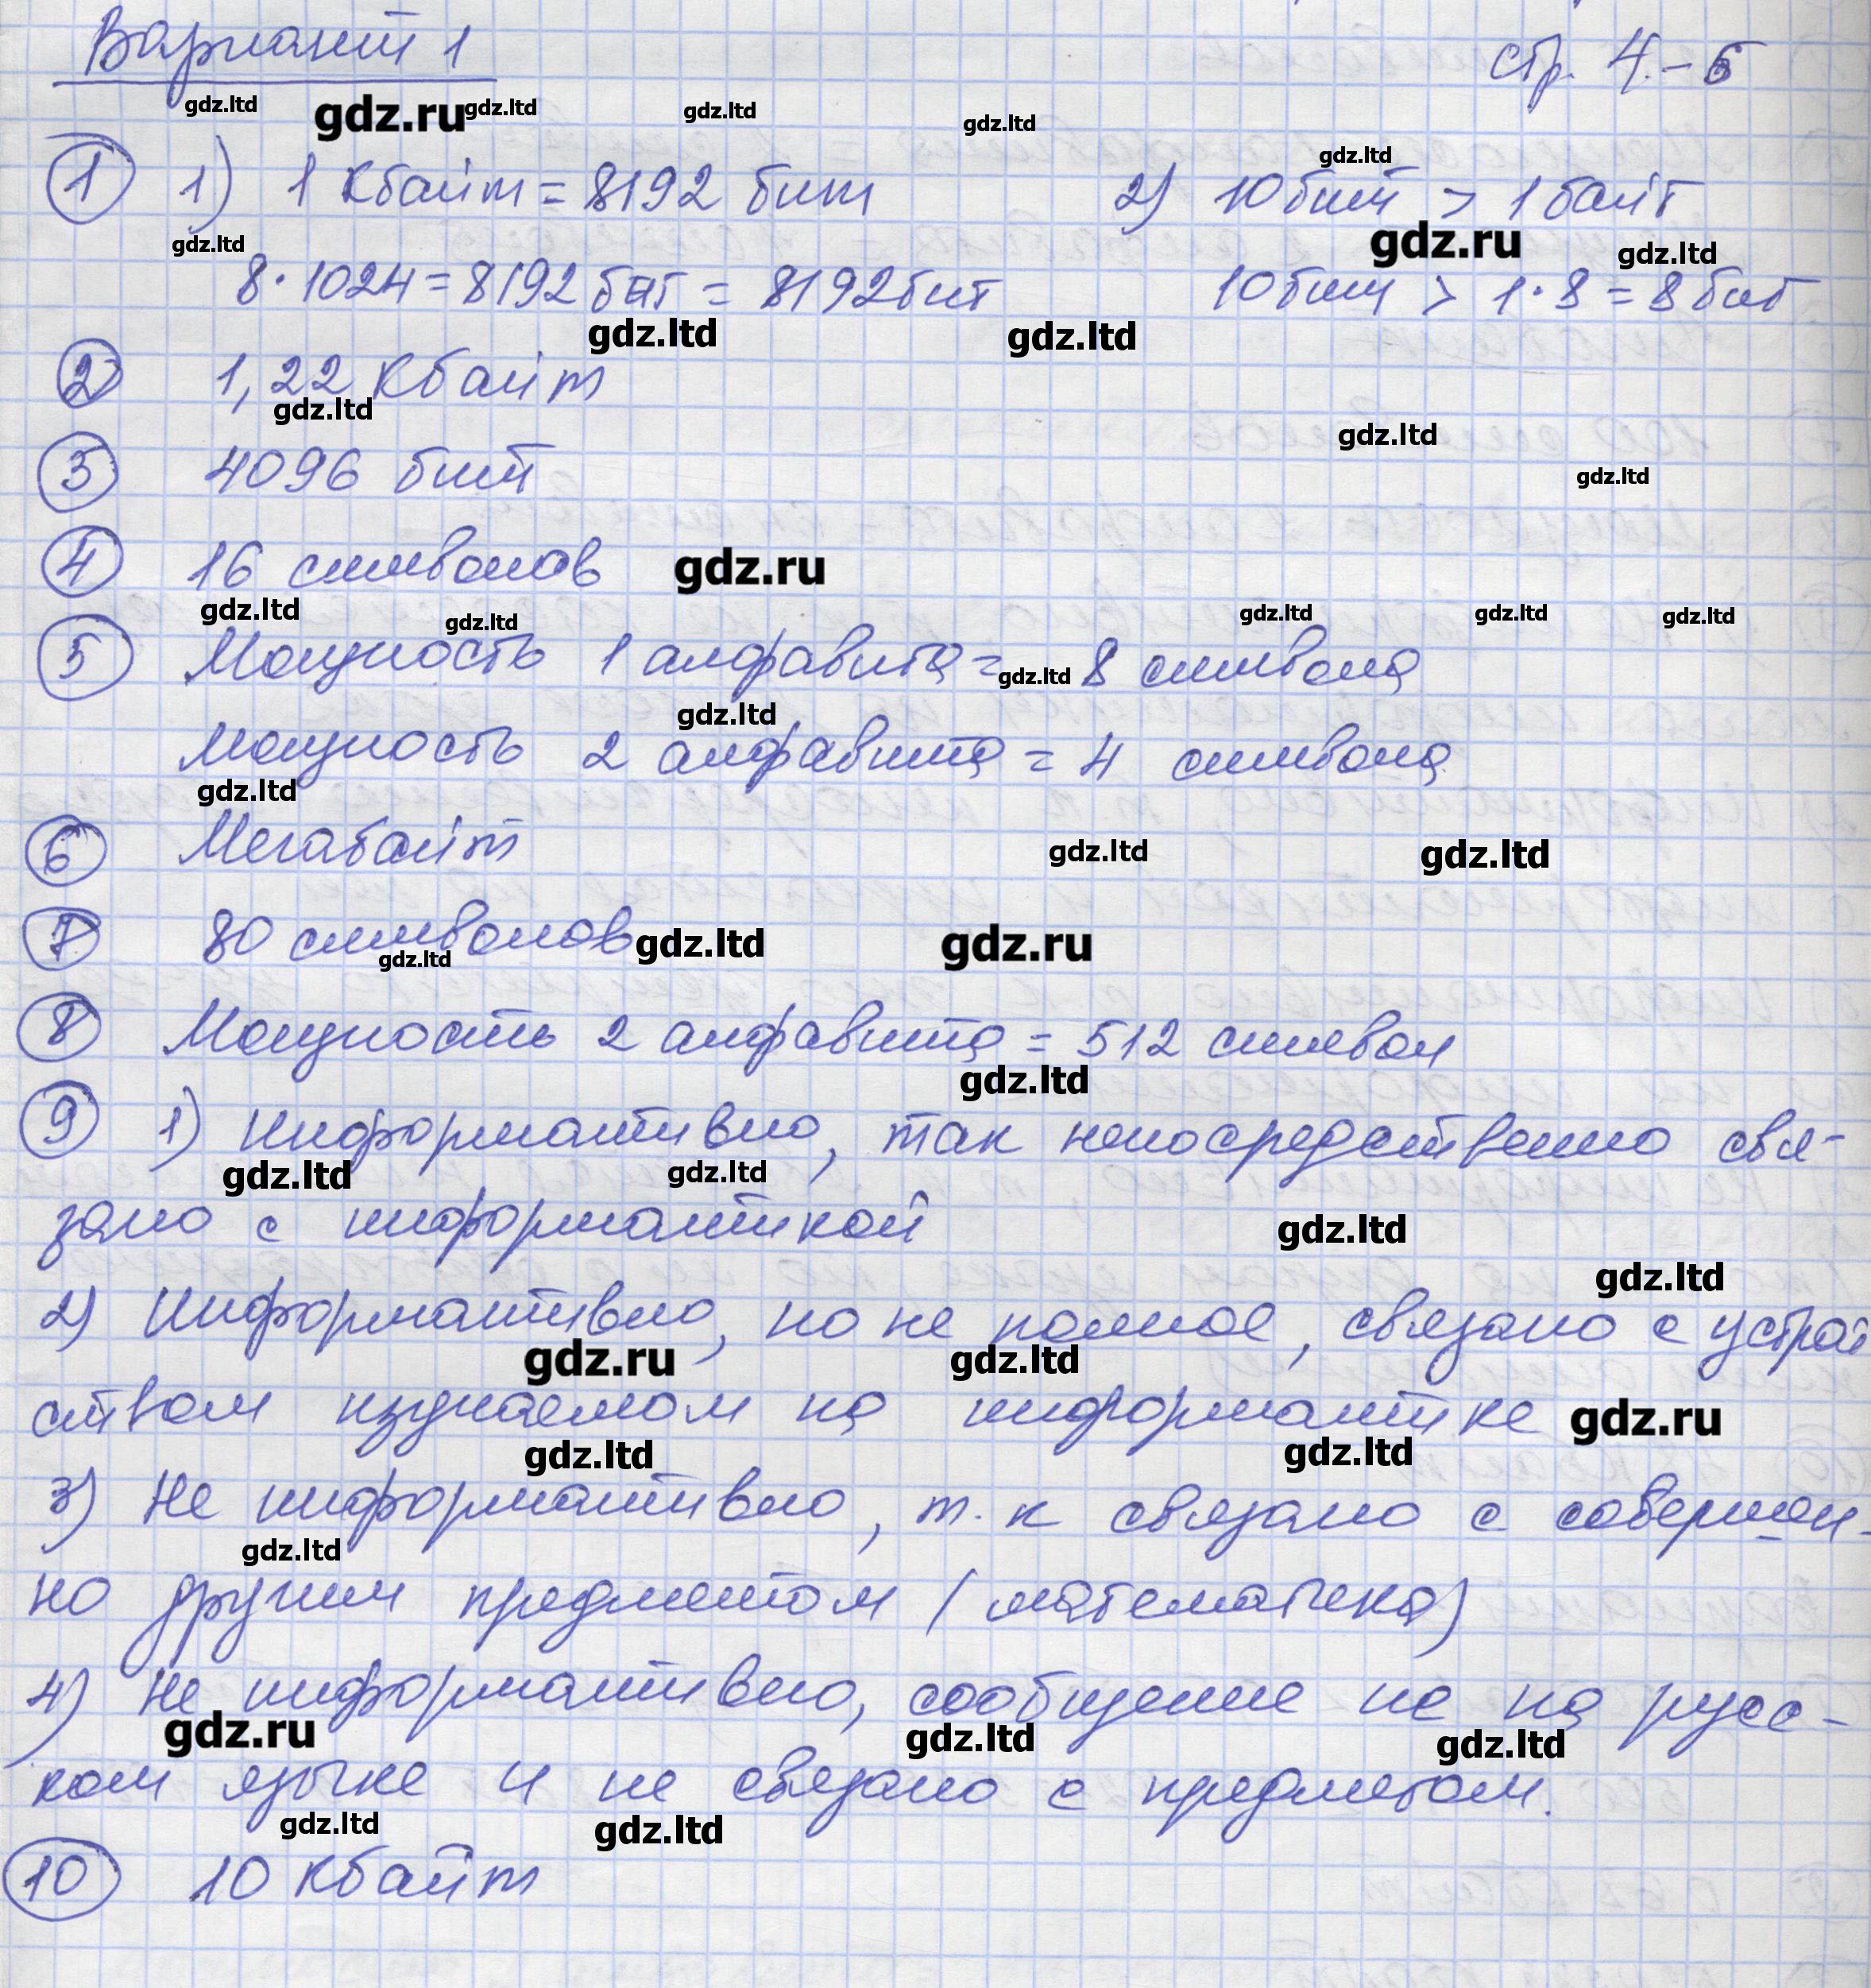 Вариант 1 стр. 4.-5
gdz.ltd gdz.ru gdz.ltd gdz.ltd gdz.ltd
1 1) 1 Кбайт = 8192 бит 2) 10 бит > 1 байт
gdz.ltd
gdz.ltd gdz.ru gdz.ltd
8·1024 = 8192 бит = 8192 бит 10 бит > 1·8 = 8 бит
gdz.ltd gdz.ltd
2 1,22 Кбайт
gdz.ltd gdz.ltd
3 4096 бит
gdz.ltd
4 16 символов gdz.ru
gdz.ltd gdz.ltd gdz.ltd gdz.ltd gdz.ltd
5 Мощность 1 алфавита = 8 символа
gdz.ltd
gdz.ltd
Мощность 2 алфавита = 4 символа
gdz.ltd
6 Мегабайт gdz.ltd gdz.ltd
7 80 символов gdz.ltd gdz.ru
gdz.ltd
8 Мощность 2 алфавита = 512 символ
gdz.ltd
9 1) Информативно, так непосредственно свя-
gdz.ltd gdz.ltd
зано с информатикой gdz.ltd
gdz.ltd
2) Информативно, но не полное, связано с устрой
gdz.ru gdz.ltd
ством изучаемом на информатике gdz.ru
gdz.ltd gdz.ltd
3) Не информативно, т.к связано с совершен-
gdz.ltd
но другим предметом (математика)
4) Не информативно, сообщение не на русс-
gdz.ru gdz.ltd gdz.ltd
ком языке и не связано с предметом.
gdz.ltd gdz.ltd
10 10 Кбайт